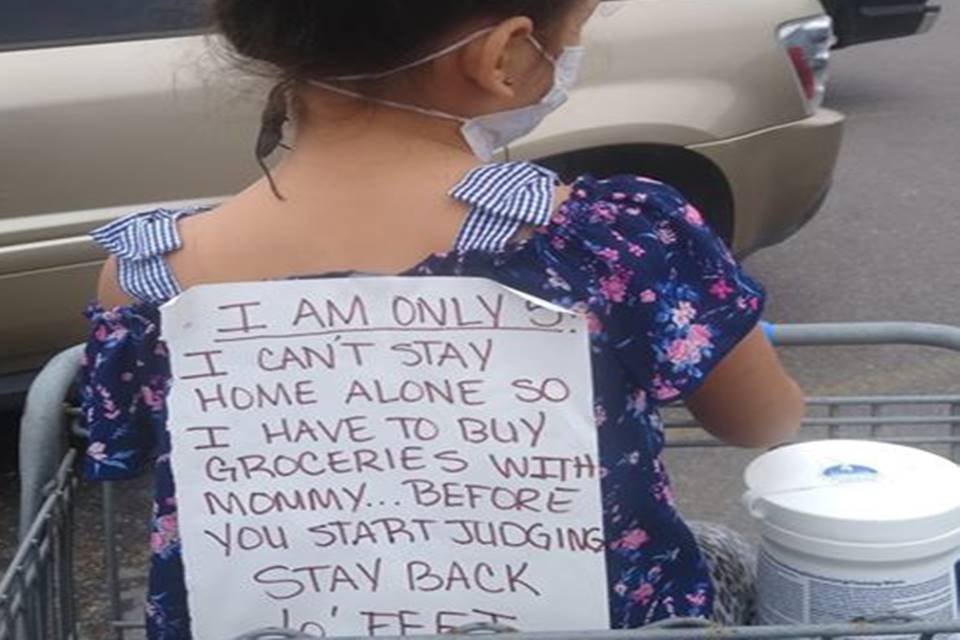 I AM ONLY 5.
I CAN'T STAY
HOME ALONE SO
I HAVE TO BUY
GROCERIES WITH
MOMMY... BEFORE
YOU START JUDGING
STAY BACK
6' FEET